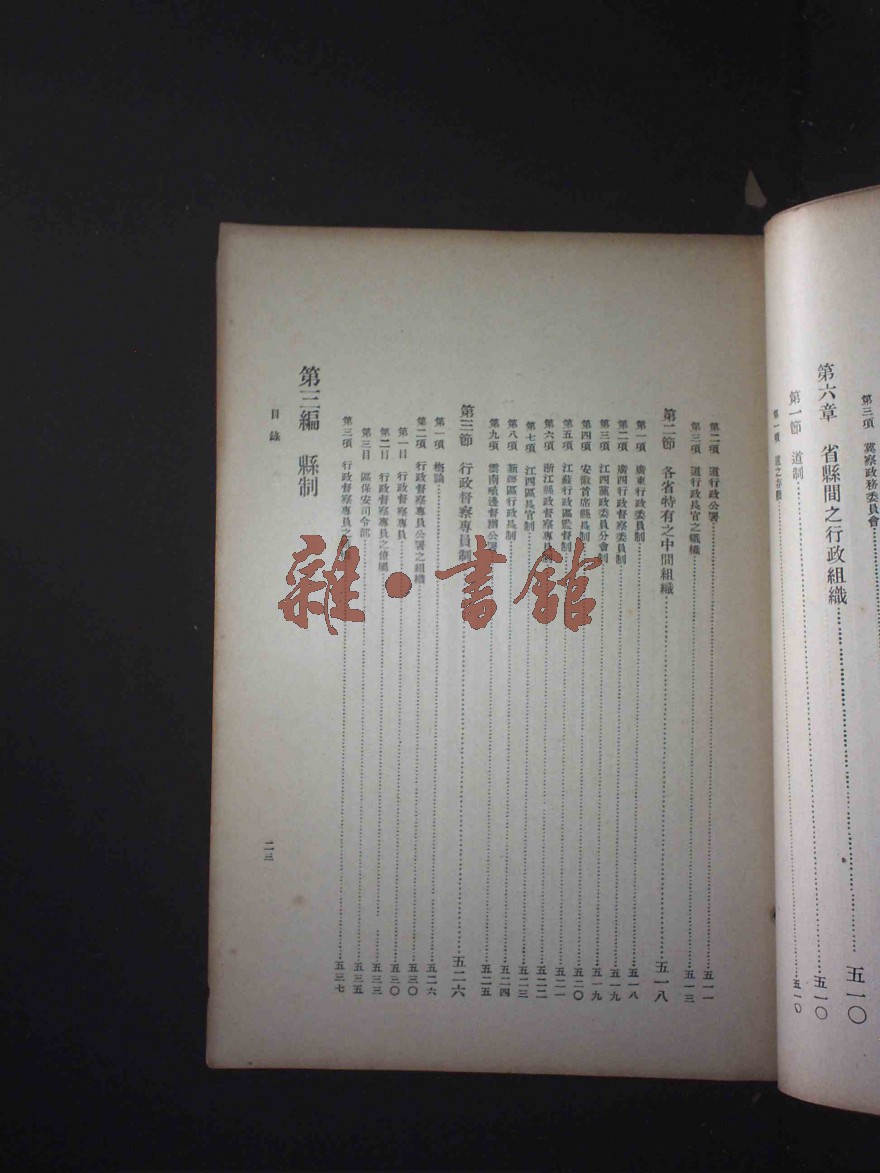 第三項 冀察政務委員會
第六章 省縣間之行政組織……五一〇
第一節 道制……五一〇
第一項 道之……五一〇
第二項 道行政公署……五一一
第三項 道行政長官之職權……五一三
第二節 各省特有之中間組織……五一八
第一項 廣東行政委員制……五一八
第二項 廣西行政督察委員制……五一九
第三項 江西黨政委員分會制……五一九
第四項 安徽首席縣長制……五二〇
第五項 江蘇行政區監督制……五二一
第六項 浙江縣政督察專員制……五二二
第七項 江西區長官制……五二三
第八項 新疆區行政長制……五二四
第九項 雲南殖邊督辦公署……五二五
第三節 行政督察專員制……五二六
第一項 概論……五二六
第二項 行政督察專員公署之組織……五三〇
第一目 行政督察專員……五三〇
第二目 行政督察專員之僚屬……五三三
第三目 區保安司令部……五三五
第三項 行政督察專員之……五三七
第三編 縣制
目錄
二三
雜·書館